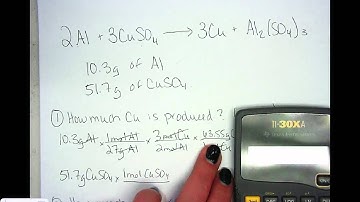 2Al + 3CuSO₄ → 3Cu + Al₂(SO₄)₃
10.3g of Al
51.7g of CuSO₄
① How much Cu is produced?
10.3g Al × 1mol Al / 27g Al × 3mol Cu / 2mol Al × 63.55g
51.7g CuSO₄ × 1mol CuSO₄
TI-30XA